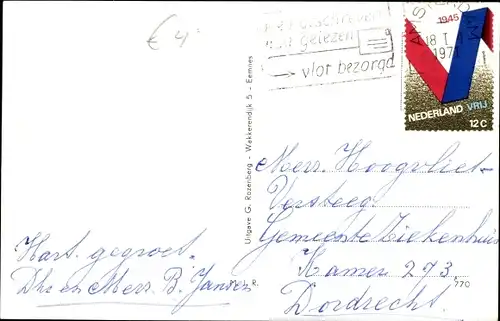 € 4
1945
AMSTERDAM
18 I
197
gelezen
→ vlot bezorgd
NEDERLAND VRIJ
12 C
Uitgave G. Rozenberg - Wakkerendijk 5 - Eemnes
R.
770
Mevr. Hoogvliet-
Versteeg.
Gemeente Ziekenhuis
Kamer 273.
Dordrecht.
Hart. gegroet.
Dhr en Mevr. B. Jansen